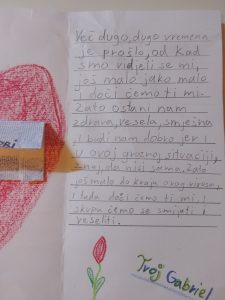 Već dugo, dugo vremena
je prošlo, od kad
smo vidjeli se mi,
još malo jako malo
i doći ćemo ti mi.
Zato ostani nam
zdrava, vesela, smješna
i budi nam dobro jer i
u ovoj groznoj situaciji,
znaj da nisi sama, zato
još malo do kraja ovog virusa,
i tada doći ćemo ti mi, i
skupa ćemo se smijati i
veseliti.
Tvoj Gabriel